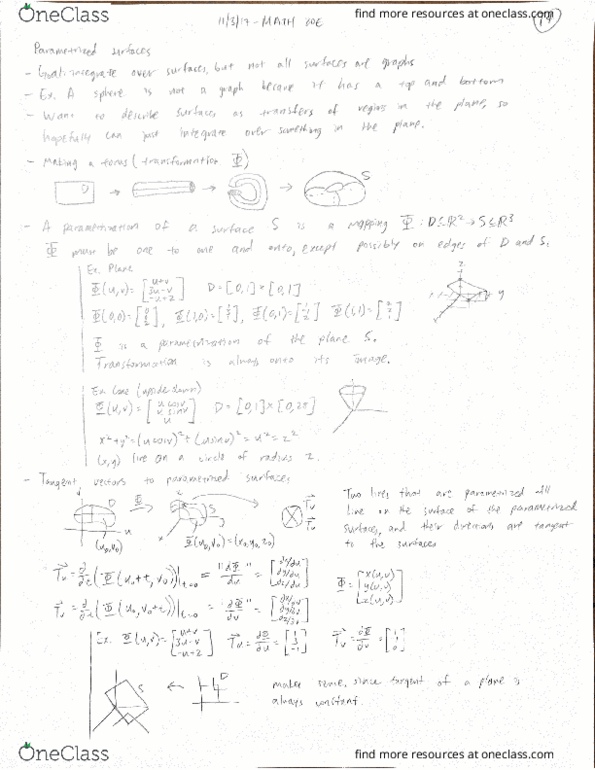 OneClass
find more resources at oneclass.com
11/3/17 - MATH 20E
Parametrized surfaces
- Goal: integrate over surfaces, but not all surfaces are graphs
- Ex. A sphere is not a graph because it has a top and bottom
- Want to describe surfaces as transfers of regions in the plane, so
hopefully can just integrate over something in the plane.
- Making a torus (transformation Φ)
D
S
- A parametrization of a surface S is a mapping Φ: D⊆ℝ² → S⊆ℝ³
Φ must be one to one and onto, except possibly on edges of D and S.
Ex. Plane
Φ(u,v) = [u+v, 3u-v, -u+2] D = [0,1]×[0,1]
z
y
Φ is a parametrization of the plane S.
Transformation is always onto its image.
Ex. Cone (upside down)
Φ(u,v) = [u cos v, u sin v, u] D = [0,1]×[0,2π]
x²+y² = (u cos v)² + (u sin v)² = u² = z²
(x,y) live on a circle of radius z.
- Tangent vectors to parametrized surfaces
D Φ S
(u₀,v₀) Φ(u₀,v₀) = (x₀,y₀,z₀)
Two lines that are parametrized will
line on the surface of the parametrized
surfaces, and their directions are tangent
to the surfaces
Tᵤ = (Φ(u₀+t, v₀))|t=0 = "dΦ/du" = [dx/du, dy/du, dz/du]
Φ = [x(u,v), y(u,v), z(u,v)]
Tᵥ = (Φ(u₀, v₀+t))|t=0 = "dΦ/dv" = [dx/dv, dy/dv, dz/dv]
Ex. Φ(u,v) = [u+v, 3u-v, -u+2] Tᵤ = ∂Φ/∂u = [1, 3, -1] Tᵥ = ∂Φ/∂v
S ← D
makes sense, since tangent of a plane is
always constant.
OneClass
find more resources at oneclass.com